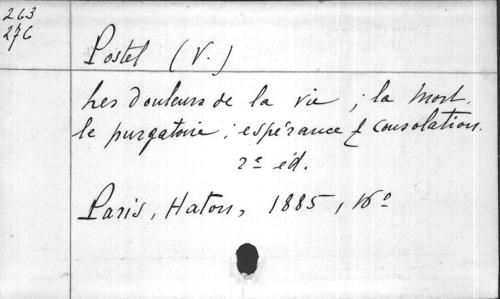 263
276
Postel (V.)
Les Douleurs de la vie ; la mort.
le purgatoire ; espérance & consolation.
2e éd.
Paris, Haton, 1885, 16º